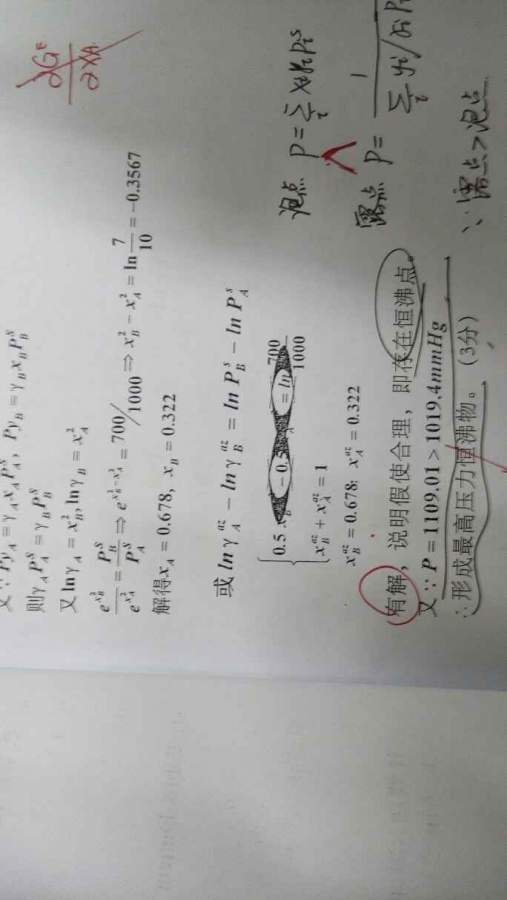 又∵ Py_A = γ_A x_A P_A^S, Py_B = γ_B x_B P_B^S
则 γ_A P_A^S = γ_B P_B^S
又 ln γ_A = x_B^2, ln γ_B = x_A^2
e^{x_B^2} / e^{x_A^2} = P_B^S / P_A^S ⇒ e^{x_B^2 - x_A^2} = 700/1000 ⇒ x_B^2 - x_A^2 = ln 7/10 = -0.3567
解得 x_A = 0.678, x_B = 0.322
或 ln γ_A^{az} - ln γ_B^{az} = ln P_B^s - ln P_A^s
0.5 = ln 700/1000
x_B^{az} + x_A^{az} = 1
x_B^{az} = 0.678; x_A^{az} = 0.322
有解，说明假使合理，即存在恒沸点。
又∵ P = 1109.01 > 1019.4mmHg
∴形成最高压力恒沸物。（3分）
∂G^E / ∂x_A
泡点 P = Σ_i x_i γ_i P_i^s
∧
露点 P = 1 / Σ_i y_i / γ_i P_i
∵露点>泡点